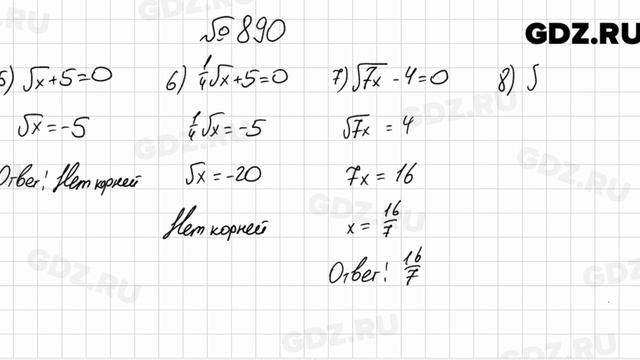 № 890
GDZ.RU
5) √x + 5 = 0
√x = -5
Ответ: Нет корней
6) 1/4 √x + 5 = 0
1/4 √x = -5
√x = -20
Нет корней
7) √7x - 4 = 0
√7x = 4
7x = 16
x = 16/7
Ответ: 16/7
8) √
GDZ.RU
GDZ.RU
GDZ.RU
GDZ.RU
GDZ.RU
GDZ.RU
GDZ.RU